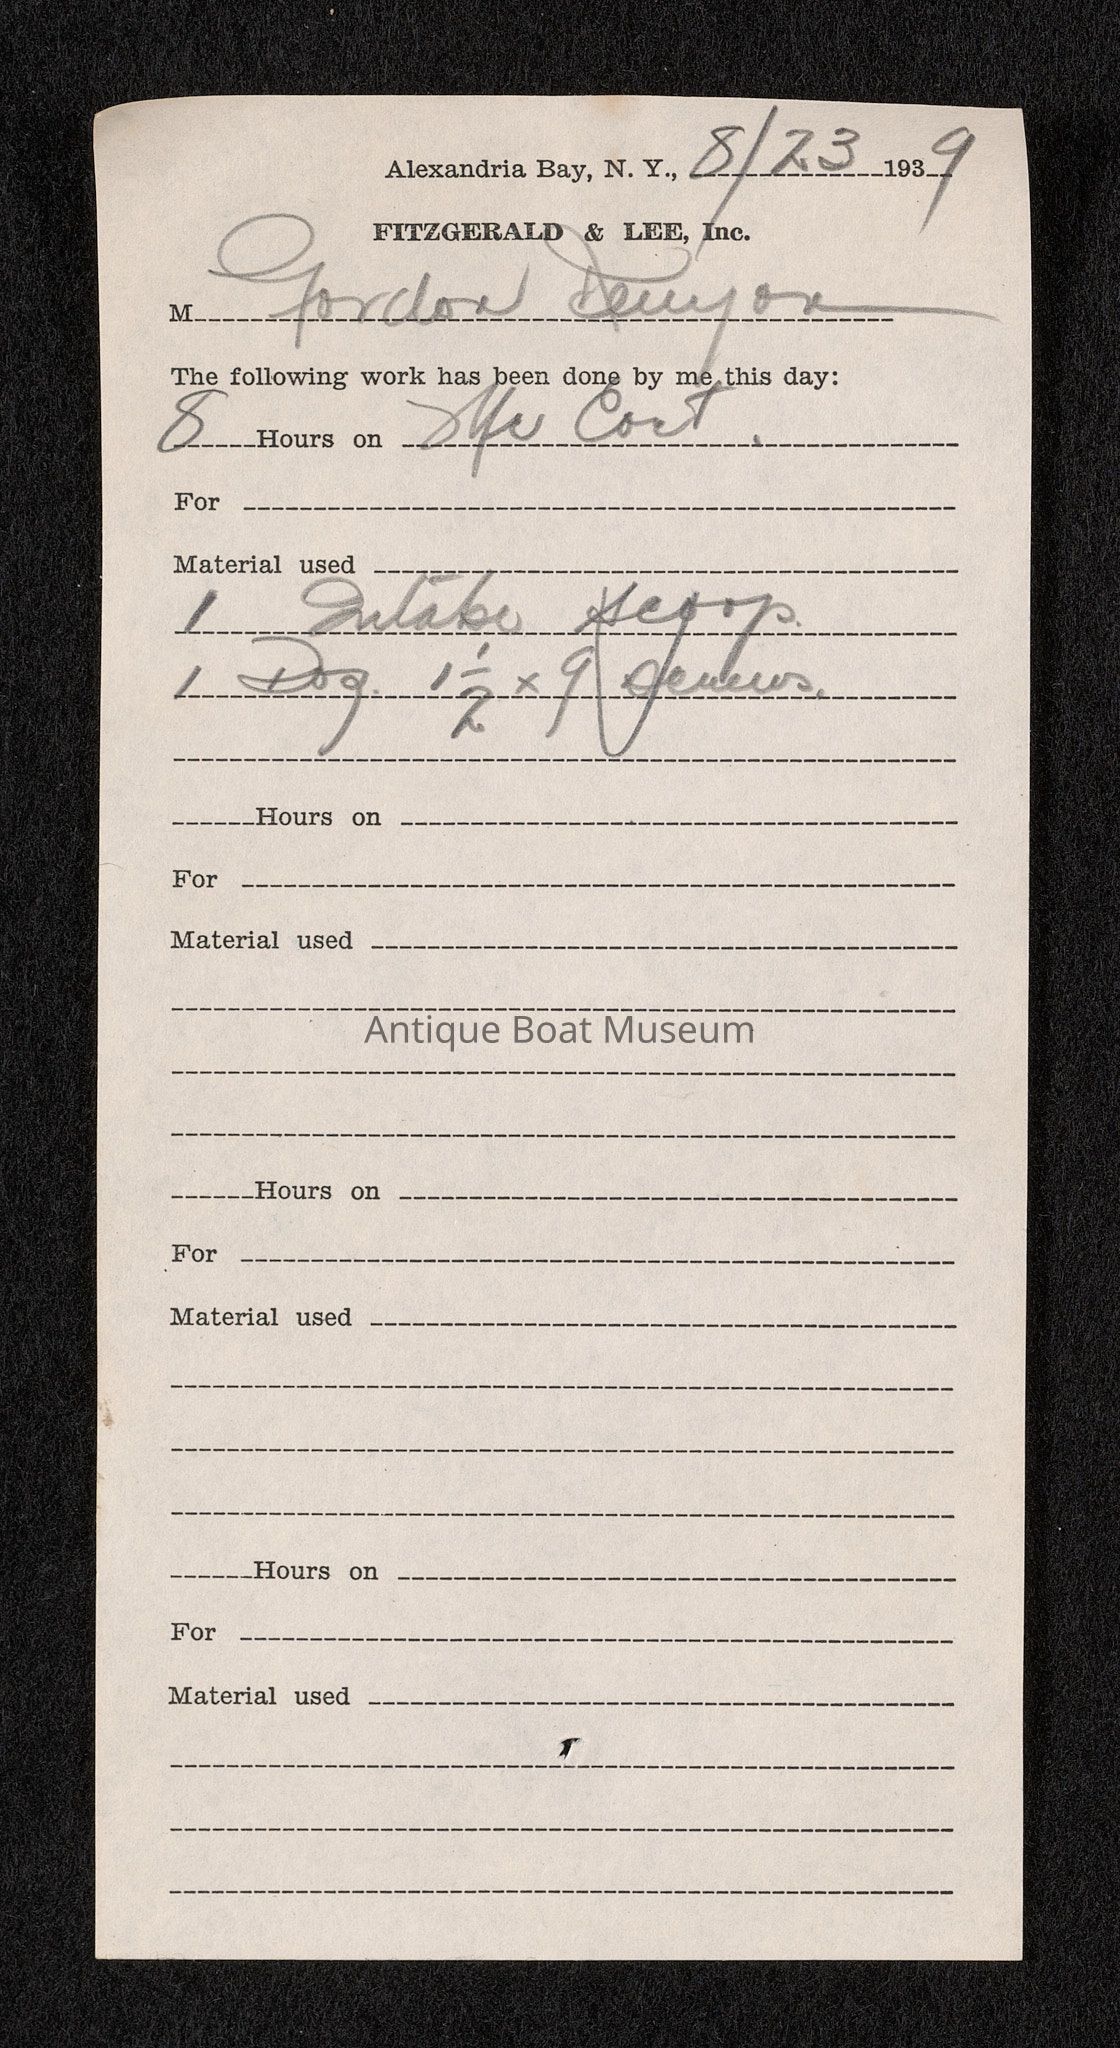 Alexandria Bay, N. Y., 8/23 1939
FITZGERALD & LEE, Inc.
M Gordon
The following work has been done by me this day:
8 Hours on
For
Material used
1 Intake scoop.
1 Doz. 1 1/2 x 9 screws.
Hours on
For
Material used
Antique Boat Museum
Hours on
For
Material used
Hours on
For
Material used